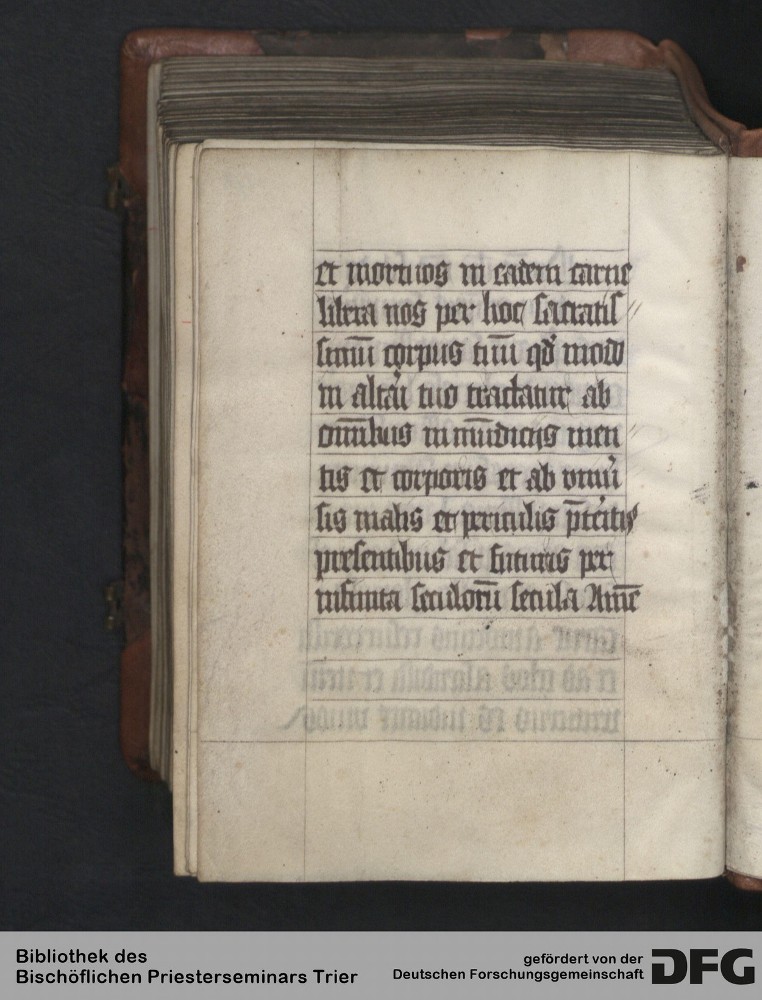 et mortuos in eadem carne
libera nos per hoc sacratis
simū corpus tuū qd̄ modo
in altari tuo tractatur ab
om̄ibus inmūdicijs men
tis et corporis et ab vniu̾
sis malis et periculis p̄teritis
presentibus et futuris per
infinita seculorū secula Amē
Bibliothek des
Bischöflichen Priesterseminars Trier
gefördert von der
Deutschen Forschungsgemeinschaft
DFG